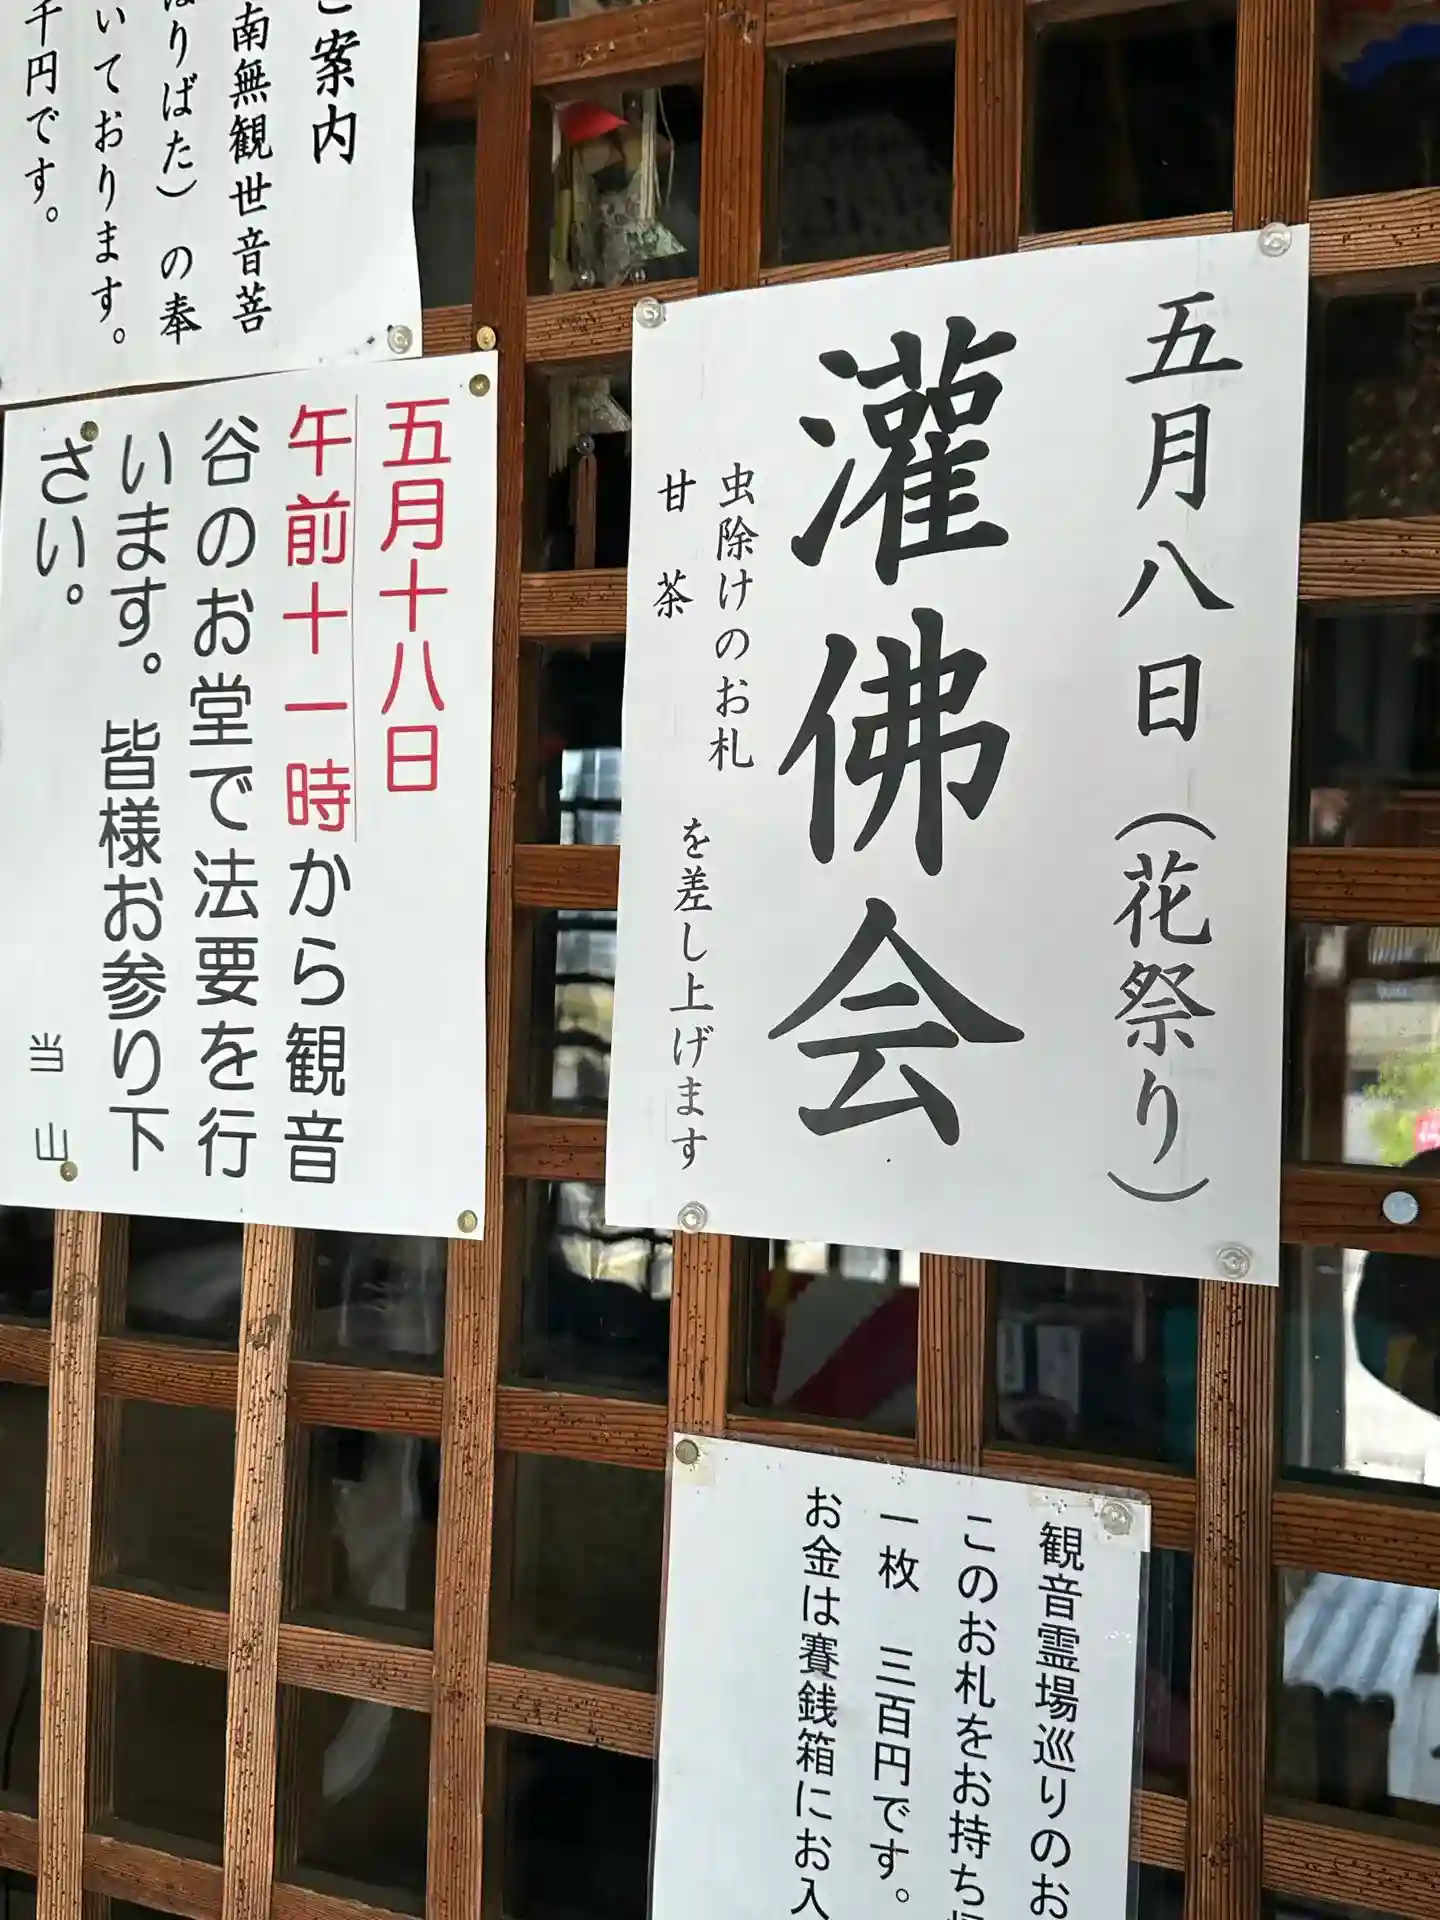 ご案内
南無観世音菩
ばた）の奉
いております。
千円です。
五月十八日
午前十一時から観音
谷のお堂で法要を行
います。皆様お参り下
さい。
当山
五月八日（花祭り）
灌佛会
虫除けのお札
甘茶
を差し上げます
観音霊場巡りのお
このお札をお持ち
一枚 三百円です。
お金は賽銭箱にお入